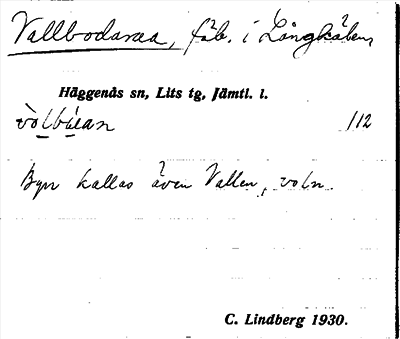 Vallbodarna, fäb. i Långkälen,
Häggenås sn, Lits tg, Jämtl. l.
112
Byn kallas även Vallen, voln.
C. Lindberg 1930.